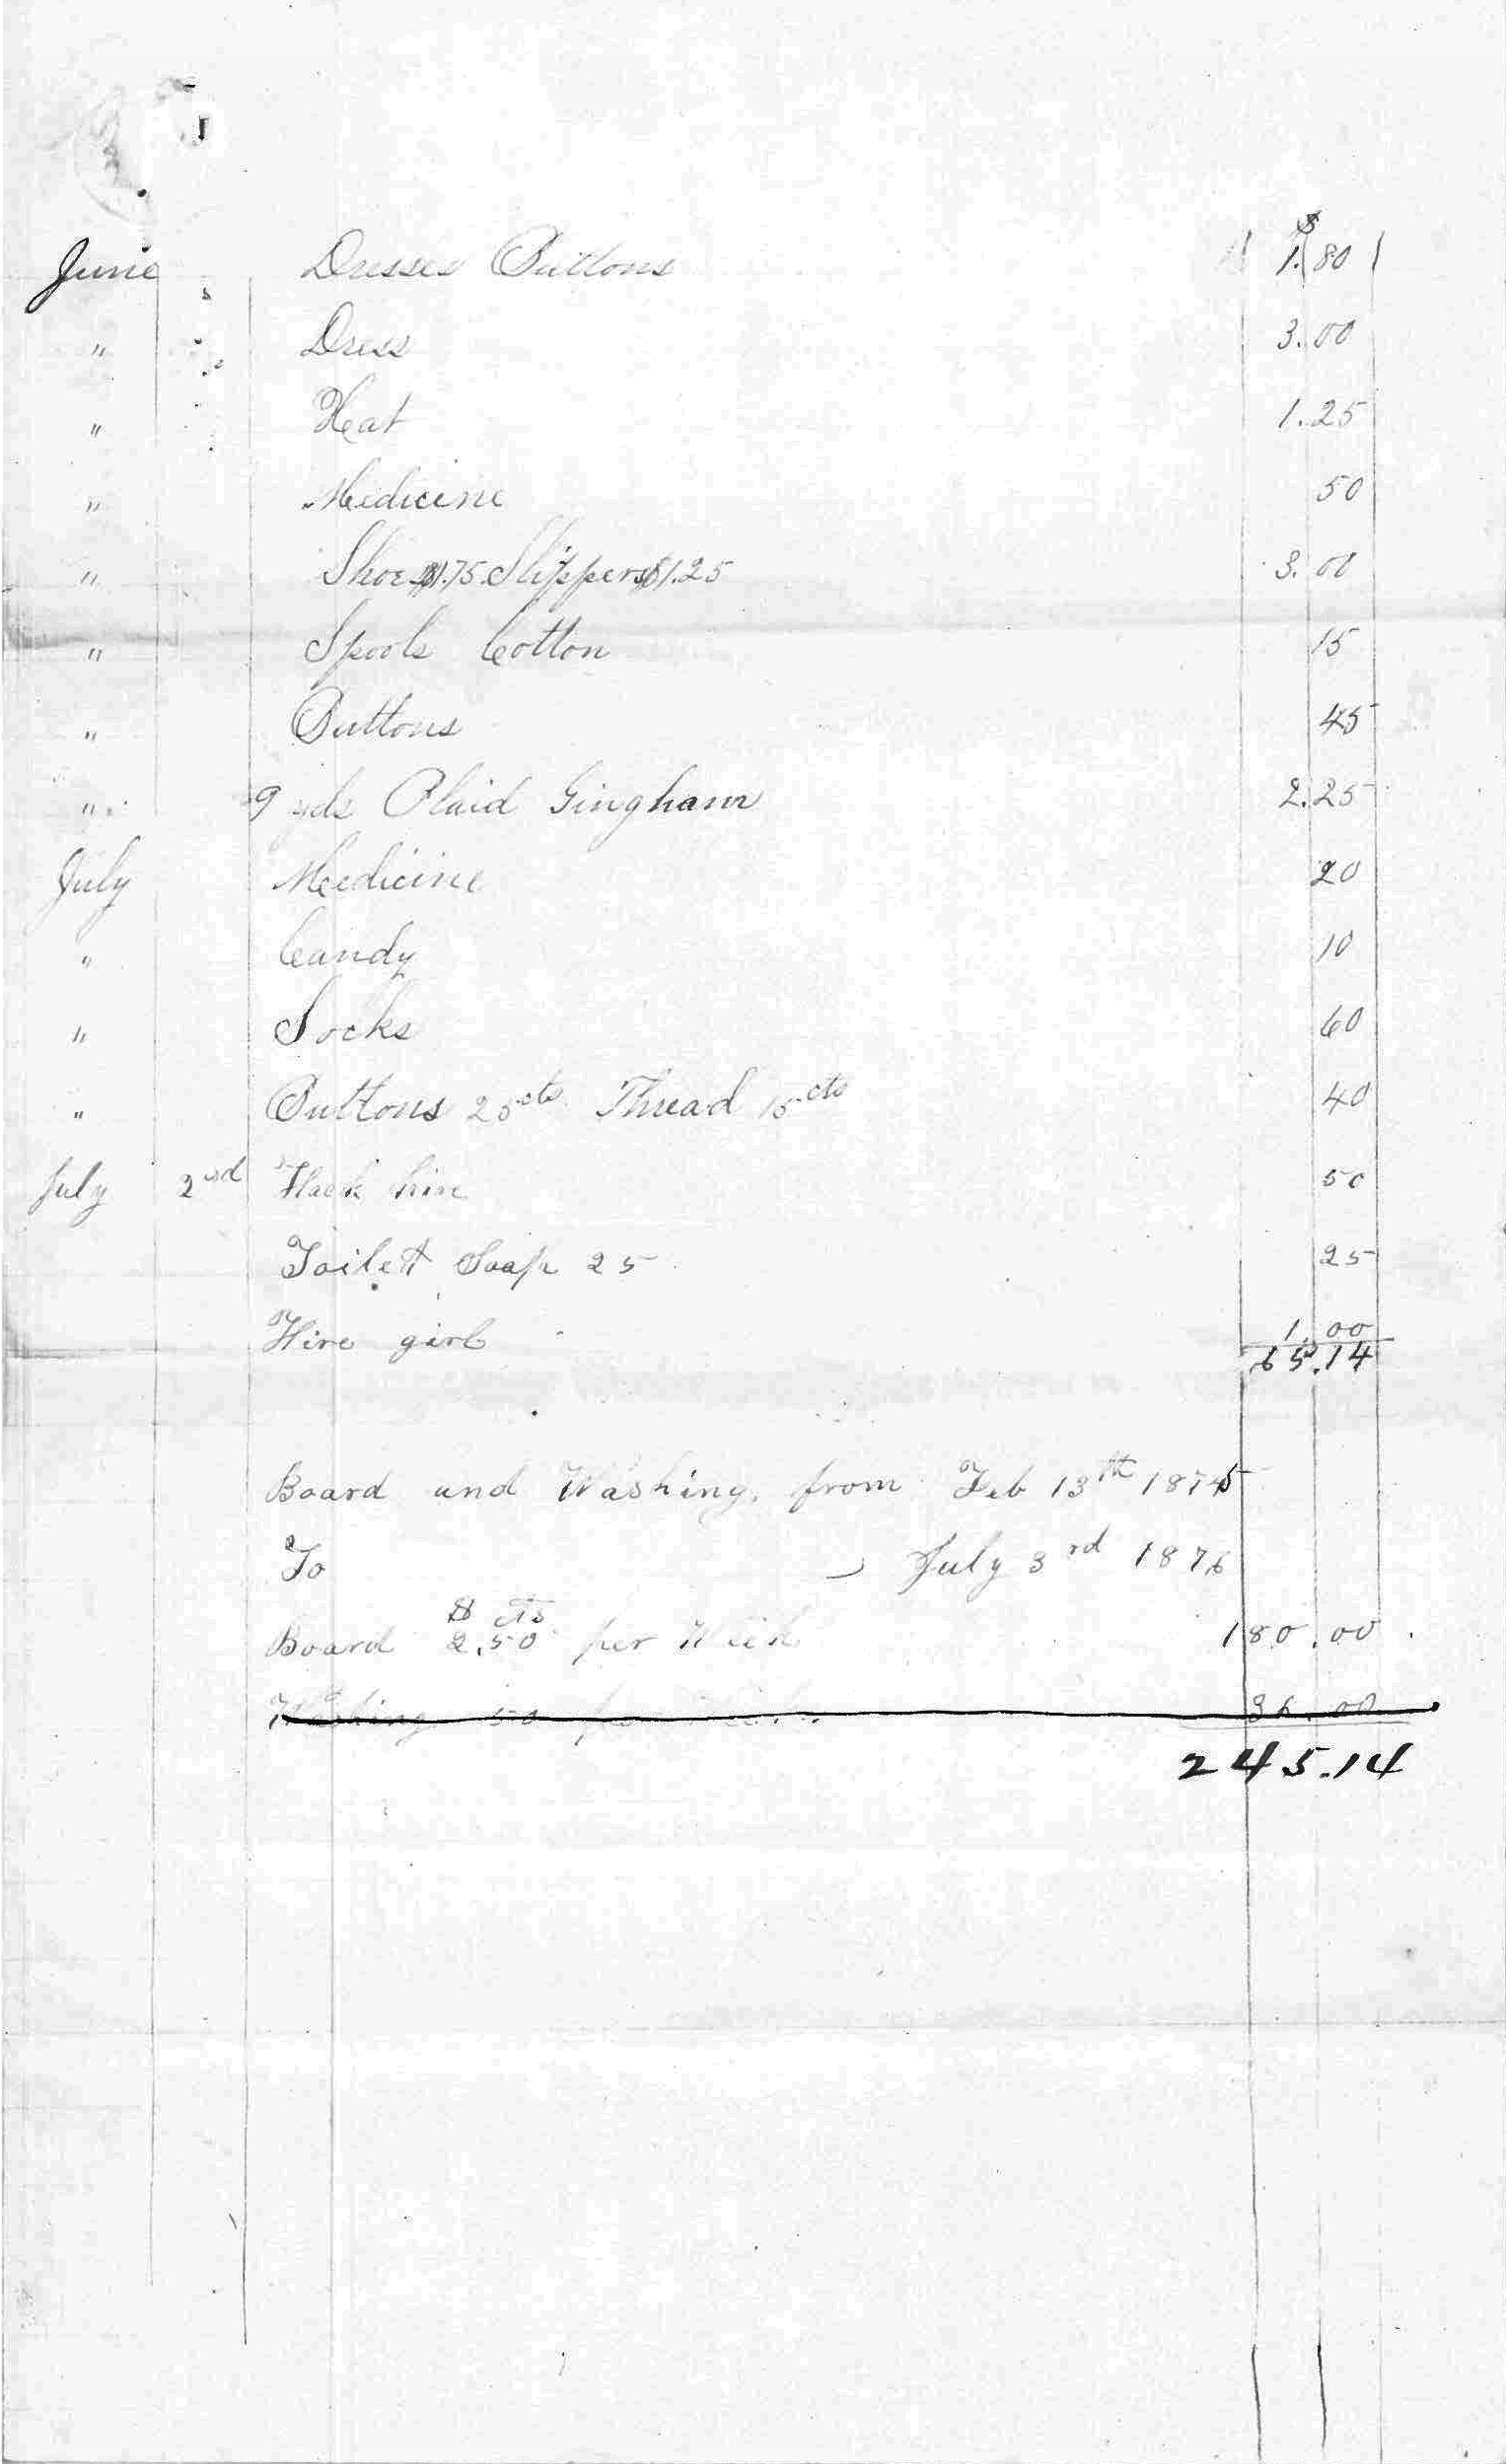 $
June Dresses Buttons 1.80
" Dress 3.00
" Heat 1.25
" Medicine 50
" Shoes $1.75 Slippers $1.25 3.00
" Spools Cotton 15
" Buttons 45
" 9 yds Plaid Gingham 2.25
July Medicine 20
" Candy 10
" Socks 60
" Buttons 25cts Thread 15cts 40
July 2nd Hack hire 50
Toilett Soap 25 25
Hire girl 1.00
65.14
Board and Washing from Feb 13th 1875
To July 3rd 1876
$ cts
Board 2.50 per Week 180.00
Washing 50 per Week 36.00
245.14